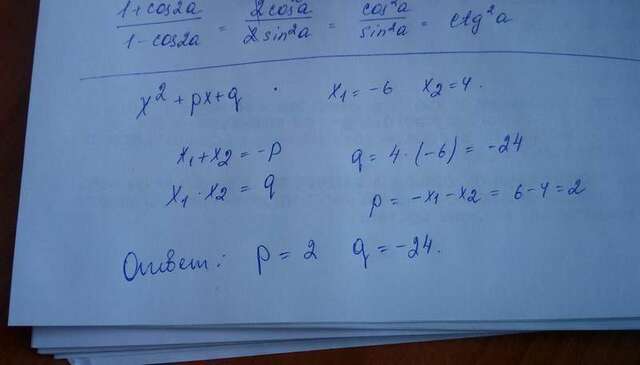 1+cos2a / 1-cos2a = 2cos²a / 2sin²a = cos²a / sin²a = ctg²a
x² + px + q . x₁ = -6 x₂ = 4.
x₁ + x₂ = -p q = 4 · (-6) = -24
x₁ · x₂ = q p = -x₁ - x₂ = 6 - 4 = 2
Ответ: p = 2 q = -24.